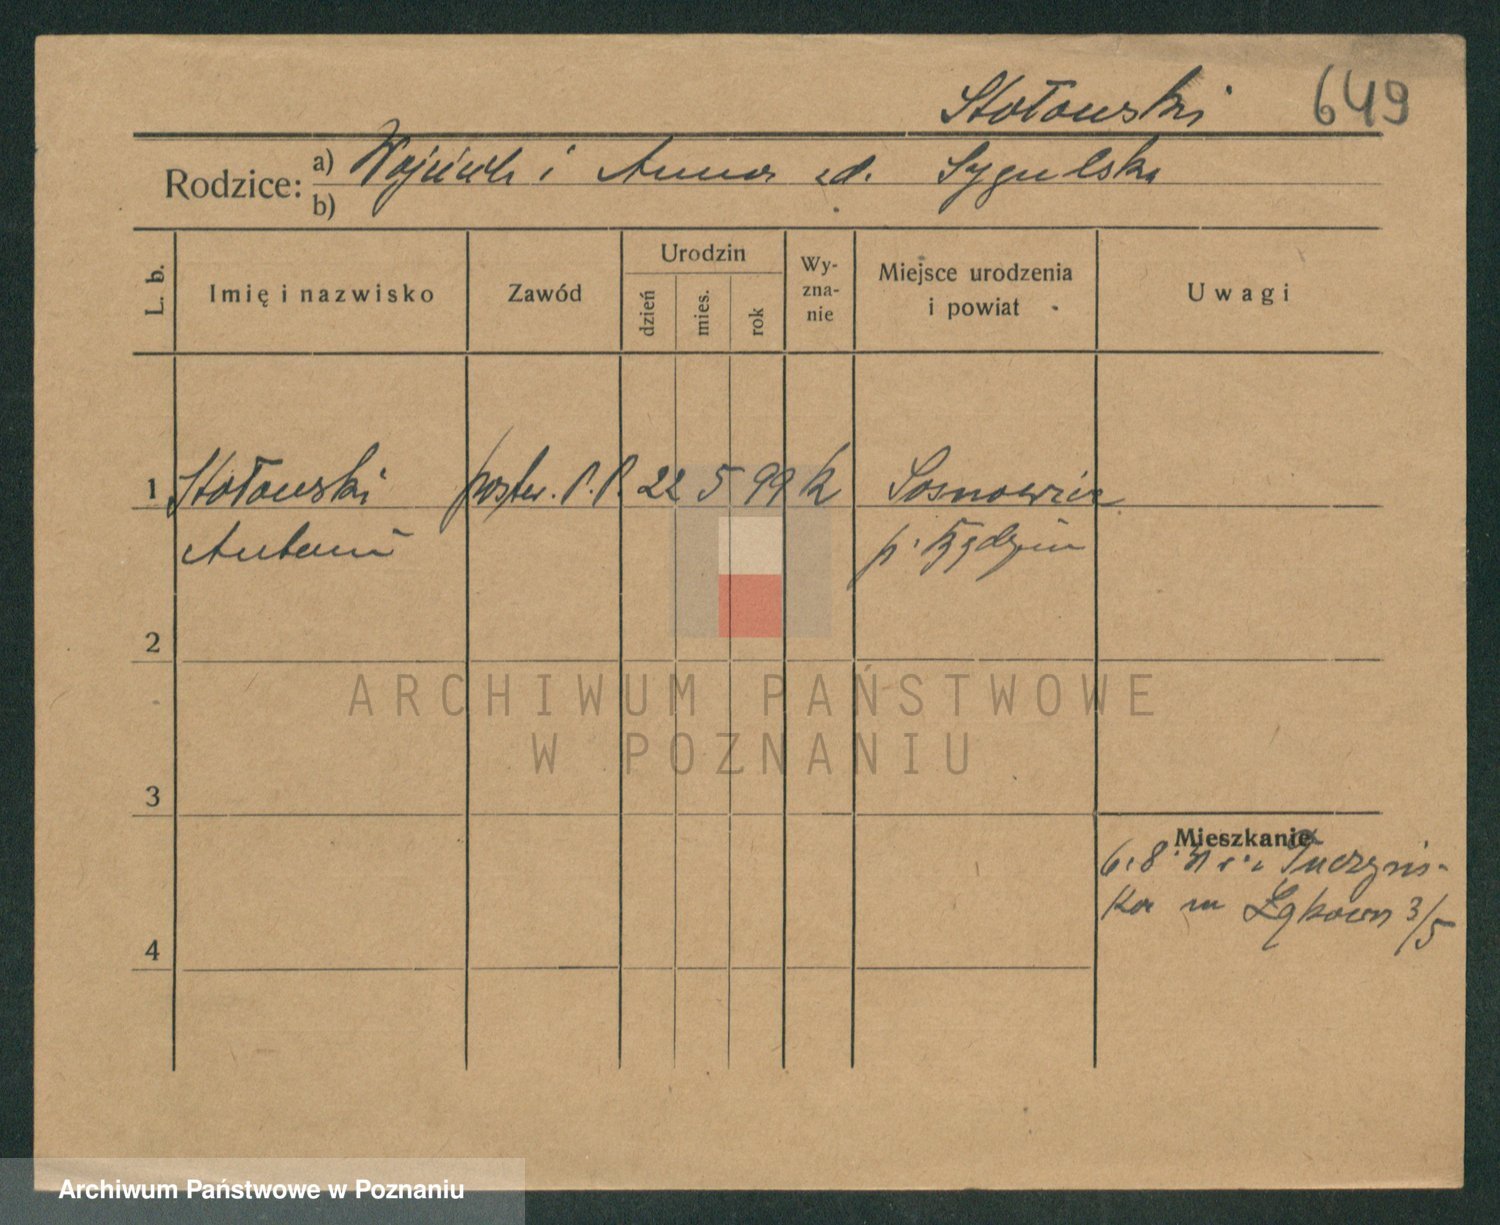 Stołowski 649
Rodzice: a) Wojciech i Anna zd. Sygulska
b)
L. b. Imię i nazwisko Zawód Urodzin dzień mies. rok Wy-zna-nie Miejsce urodzenia i powiat Uwagi
1 Stołowski poster. P.P. 22 5 99 k Sosnowiec
Antoni p.
2
ARCHIWUM PAŃSTWOWE
W POZNANIU
3
Mieszkanie
6.8. Tuczyńs-
ka m Łąkowa 3/5
4
Archiwum Państwowe w Poznaniu